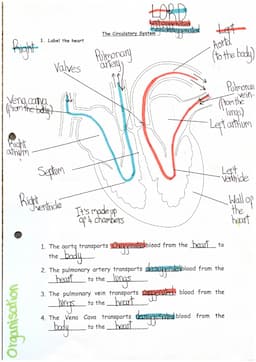 LORD
Right
Left
The Circulatory System
1. Label the heart
Aorta
(to the body)
Pulmonary
artery
Valves
Pulmonary
vein
(from the
lungs)
Vena cava
(from the body)
Left atrium
Right
atrium
Septum
Left
Ventricle
Right
ventricle
Wall of
the
heart
It's made up
of 4 chambers
1. The aorta transports oxygenated blood from the heart to
the body
2. The pulmonary artery transports deoxygenated blood from the
heart to the lungs
3. The pulmonary vein transports oxygenated blood from the
lungs to the heart
4. The Vena Cava transports deoxygenated blood from the
body to the heart
Organisation